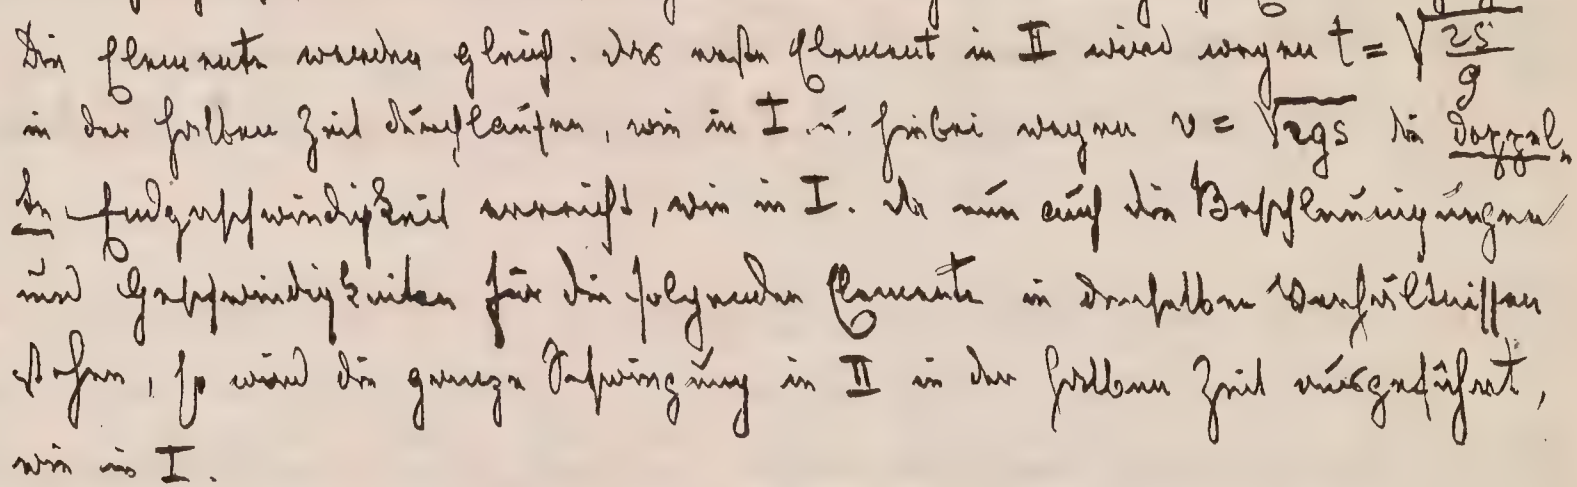 Die Elemente werden gleich. Das erste Element in II wird wegen t = √2s/g
in der halben Zeit durchlaufen, wie in I u. hiebei wegen v = √2gs die doppel„
te Endgeschwindigkeit erreicht, wie in I. Da nun auch die Beschleunigungen
und Geschwindigkeiten für die folgenden Elemente in denselben Verhältnissen
stehen, so wird die ganze Schwingung in II in der halben Zeit ausgeführt,
wie in I.